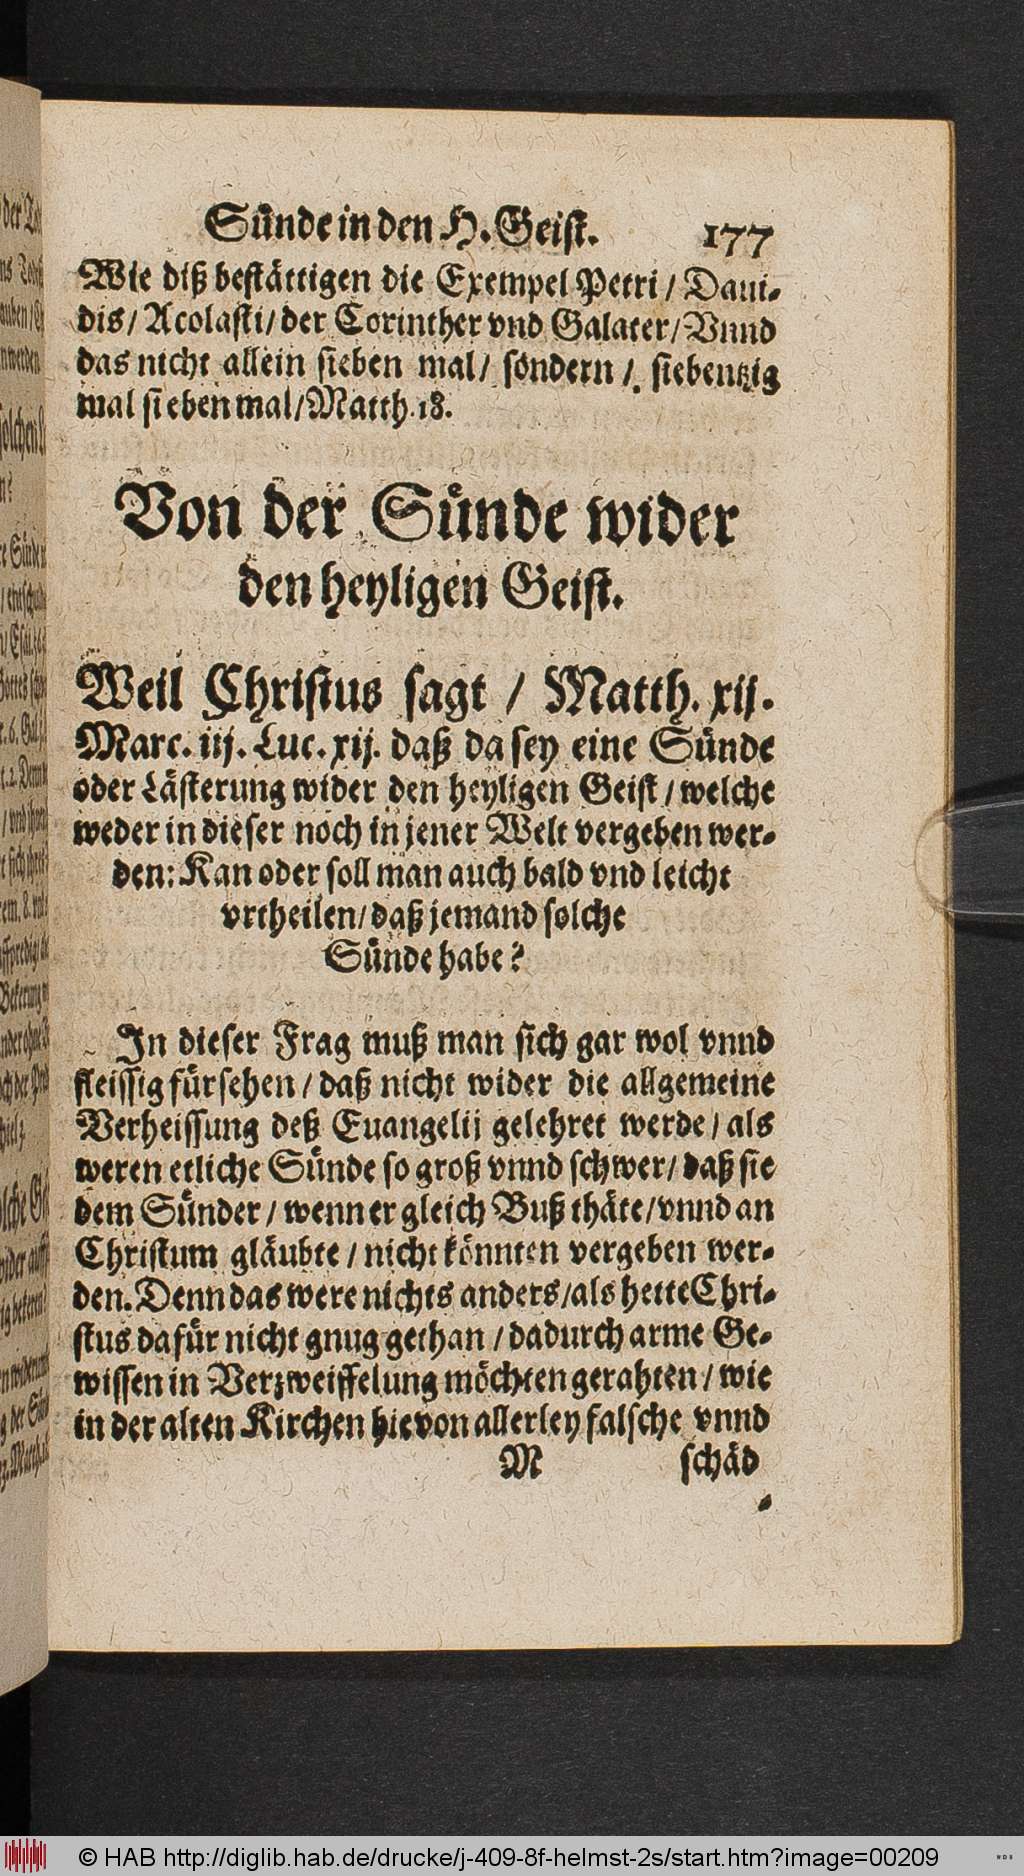 Sünde in den H. Geist. 177
Wie diß bestättigen die Exempel Petri / Daui-
dis / Acolasti / der Corinther vnd Galater / Vnnd
das nicht allein sieben mal / sondern / siebentzig
mal sieben mal / Matth. 18.
Von der Sünde wider
den heyligen Geist.
Weil Christus sagt / Matth. xij.
Marc. iij. Luc. xij. daß da sey eine Sünde
oder Lästerung wider den heyligen Geist / welche
weder in dieser noch in jener Welt vergeben wer-
den: Kan oder soll man auch bald vnd leicht
vrtheilen / daß jemand solche
Sünde habe?
In dieser Frag muß man sich gar wol vnnd
fleissig fürsehen / daß nicht wider die allgemeine
Verheissung deß Euangelij gelehret werde / als
weren etliche Sünde so groß vnnd schwer / daß sie
dem Sünder / wenn er gleich Buß thäte / vnnd an
Christum gläubte / nicht könnten vergeben wer-
den. Denn das were nichts anders / als hette Chri-
stus dafür nicht gnug gethan / dadurch arme Ge-
wissen in Verzweiffelung möchten gerahten / wie
in der alten Kirchen hievon allerley falsche vnnd
M schäd
© HAB http://diglib.hab.de/drucke/j-409-8f-helmst-2s/start.htm?image=00209